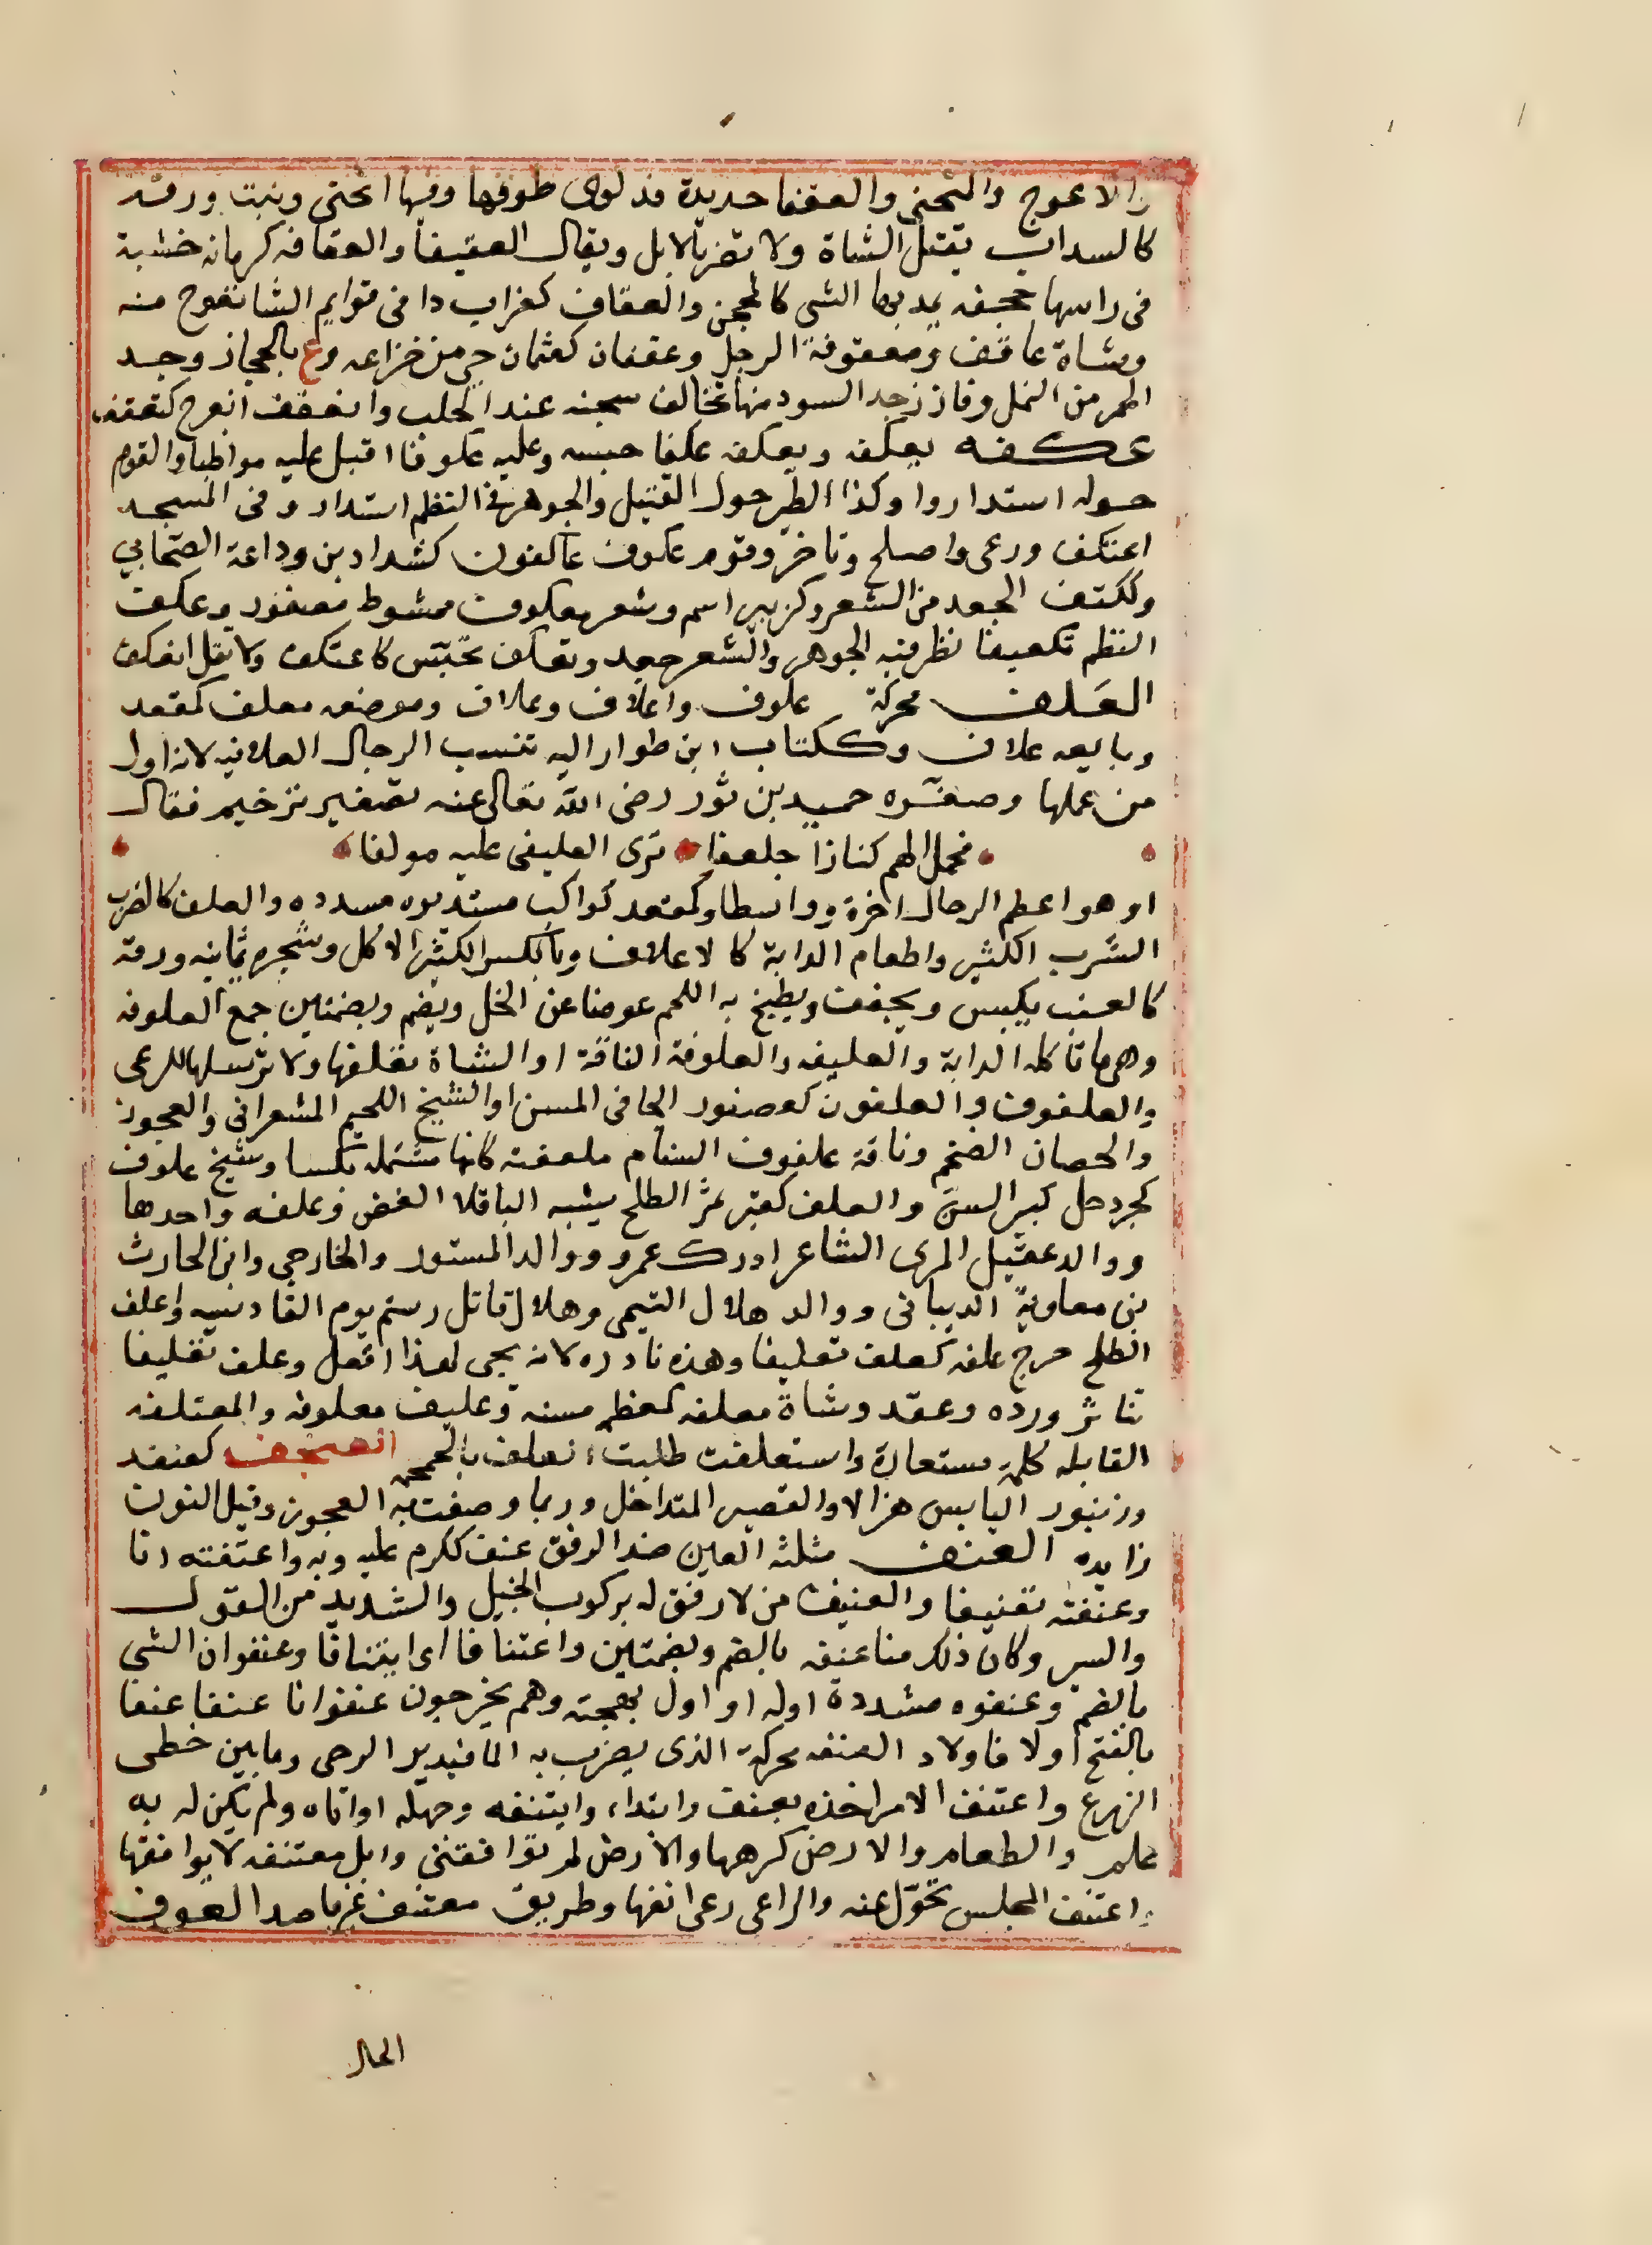 والاعوج والمنحنى والعقفا حديدة قد لوى طرفها وفيها انحنى ونبت ورقه
كالسداب يقتل الشاة ولا تضر بالابل ويقال العقيفا والعقافه كرمانه خشبة
فى راسها حجفه يمد بها الشى كالمحجن والعقاف كغراب دا فى قوايم الشا تعوج منه
وشاة عاقف ومعقوفة الرجل وعقفان كعثمان حى من خزاعه وع بالحجاز وجد
الحمر من النمل وفازر جد السود منها تخالف سجنه عند الحلب وانعقف انعوج كتعقف
عكفه يعكفه ويعكفه عكفا حبسه وعليه عكوفا اقبل عليه مواظبا والقوم
حوله استداروا وكذا الطير حول القتيل والجوهر فى النظم استدار وفى المسجد
اعتكف ورعى واصلح وتاخر وقوم عكوف عاكفون كشداد بن وداعة الصحابي
وككتف الجعد من الشعر وكزبير اسم وشعر معكوف ممشوط مضفور وعكف
النظم تكعيفا نظر فيه الجوهر والشعر جعد وتعكف تحبس كاعتكف ولا تقل انعكف
العَلف محركة علوف واعلاف وعلاف وموضعه معلف كمقعد
وبايعه علاف وككتاب ابن طوار اليه تنسب الرحال العلافيه لانه اول
من عملها وصغره حميد بن ثور رضى الله تعالى عنه تصغير ترخيم فقال
فحمل الهم كنازا جلعفا ترى العليفى عليه مولفا
او هو اعظم الرحال اخرة وواسطا وكمقعد كواكب مستديره مسدده والعلف كالضرب
الشرب الكثير واطعام الدابة كالاعلاف وبالكسر الكثير الاكل وشجره يمانيه ورقه
كالعنب يكبس ويجفف ويطبخ به اللحم عوضا عن الخل ويضم وبضمتين جمع العلوفه
وهى ما تاكله الدابة والعليفه والعلوفة الناقة او الشاة تعلفها ولا ترسلها للرعى
والعلفوف والعلفون كعصفور الجافى المسن او الشيخ اللحيم المشعرانى والعجوز
والحصان الضخم وناقة علفوف السنام ملعفته كانها مشتمله بكسا وشيخ علوف
كجردحل كبير السن والعلف كقبر ثمر الطلح يشبه الباقلا الغض وعلفه واحدها
ووالد عقيل المرى الشاعر ادرك عمر ووالد المستورد والخارجى وابن الحارث
بن معاوية الديبانى ووالد هلال التيمى وهلال قاتل رستم يوم القادسيه واعلف
الطلح خرج علفه كعلف تعليفا وهذه نادره لانه يجى لهذا افعل وعلف تعليفا
تناثر ورده وعقد وشاة معلفه كمعظم مسنه وعليف معلوفه والمعتلفه
القابله كلمة مستعارة واستعلفت طلبت العلف بالحمحمه العنجف كقنفد
وزنبور اليابس هزالا والقصير المتداخل وربما وصفت به العجوز وقيل النون
زايده العنف مثلثة العين ضد الرفق عنف ككرم عليه وبه واعتفته انا
وعنفته تعنيفا والعنيف من لا رفق له بركوب الخيل والشديد من القول
والسير وكان ذلك منا عنفه بالضم وبضمتين واعتنافا اى ايتنافا وعنفوان الشى
بالضم وعنفوه مشددة اوله او اول بهجته وهم يخرجون عنفوانا عنفا عنفا
بالفتح اولا فاولا د العنفه محركة الذى يضرب به الما فيدير الرحى وما بين خطى
الزرع واعتنف الامر اخذه بعنف وابتداء وايتنفه وجهله او اتاه ولم يكن له به
علم والطعام والارض كرهها والارض لم توافقنى وابل معتنفه لا يوافقها
واعتنف المجلس تحول عنه والراعى رعى انفها وطريق معتنف غير قاصد العوف
الحال